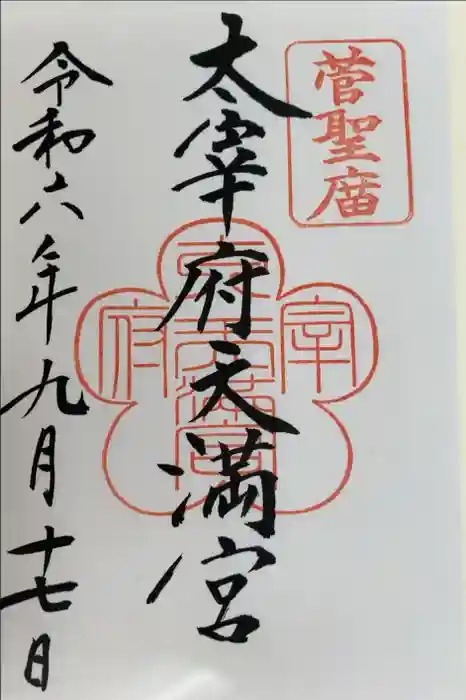 菅聖庿
太宰府天満宮
令和六年九月十七日